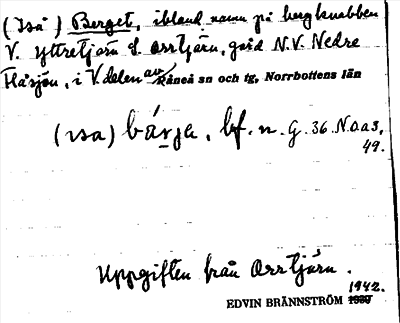 (Iså) Berget, ibland namn på bergknabben
V. Yttretjärn S. Orrtjärn, gård N.V. Nedre
Flåsjön, i V delen av Råneå sn och tg, Norrbottens län
(ɪsa) bárja, bf. n. G. 36 N.o.a 3,
49.
Uppgiften från Orrtjärn.
1942.
EDVIN BRÄNNSTRÖM 1939